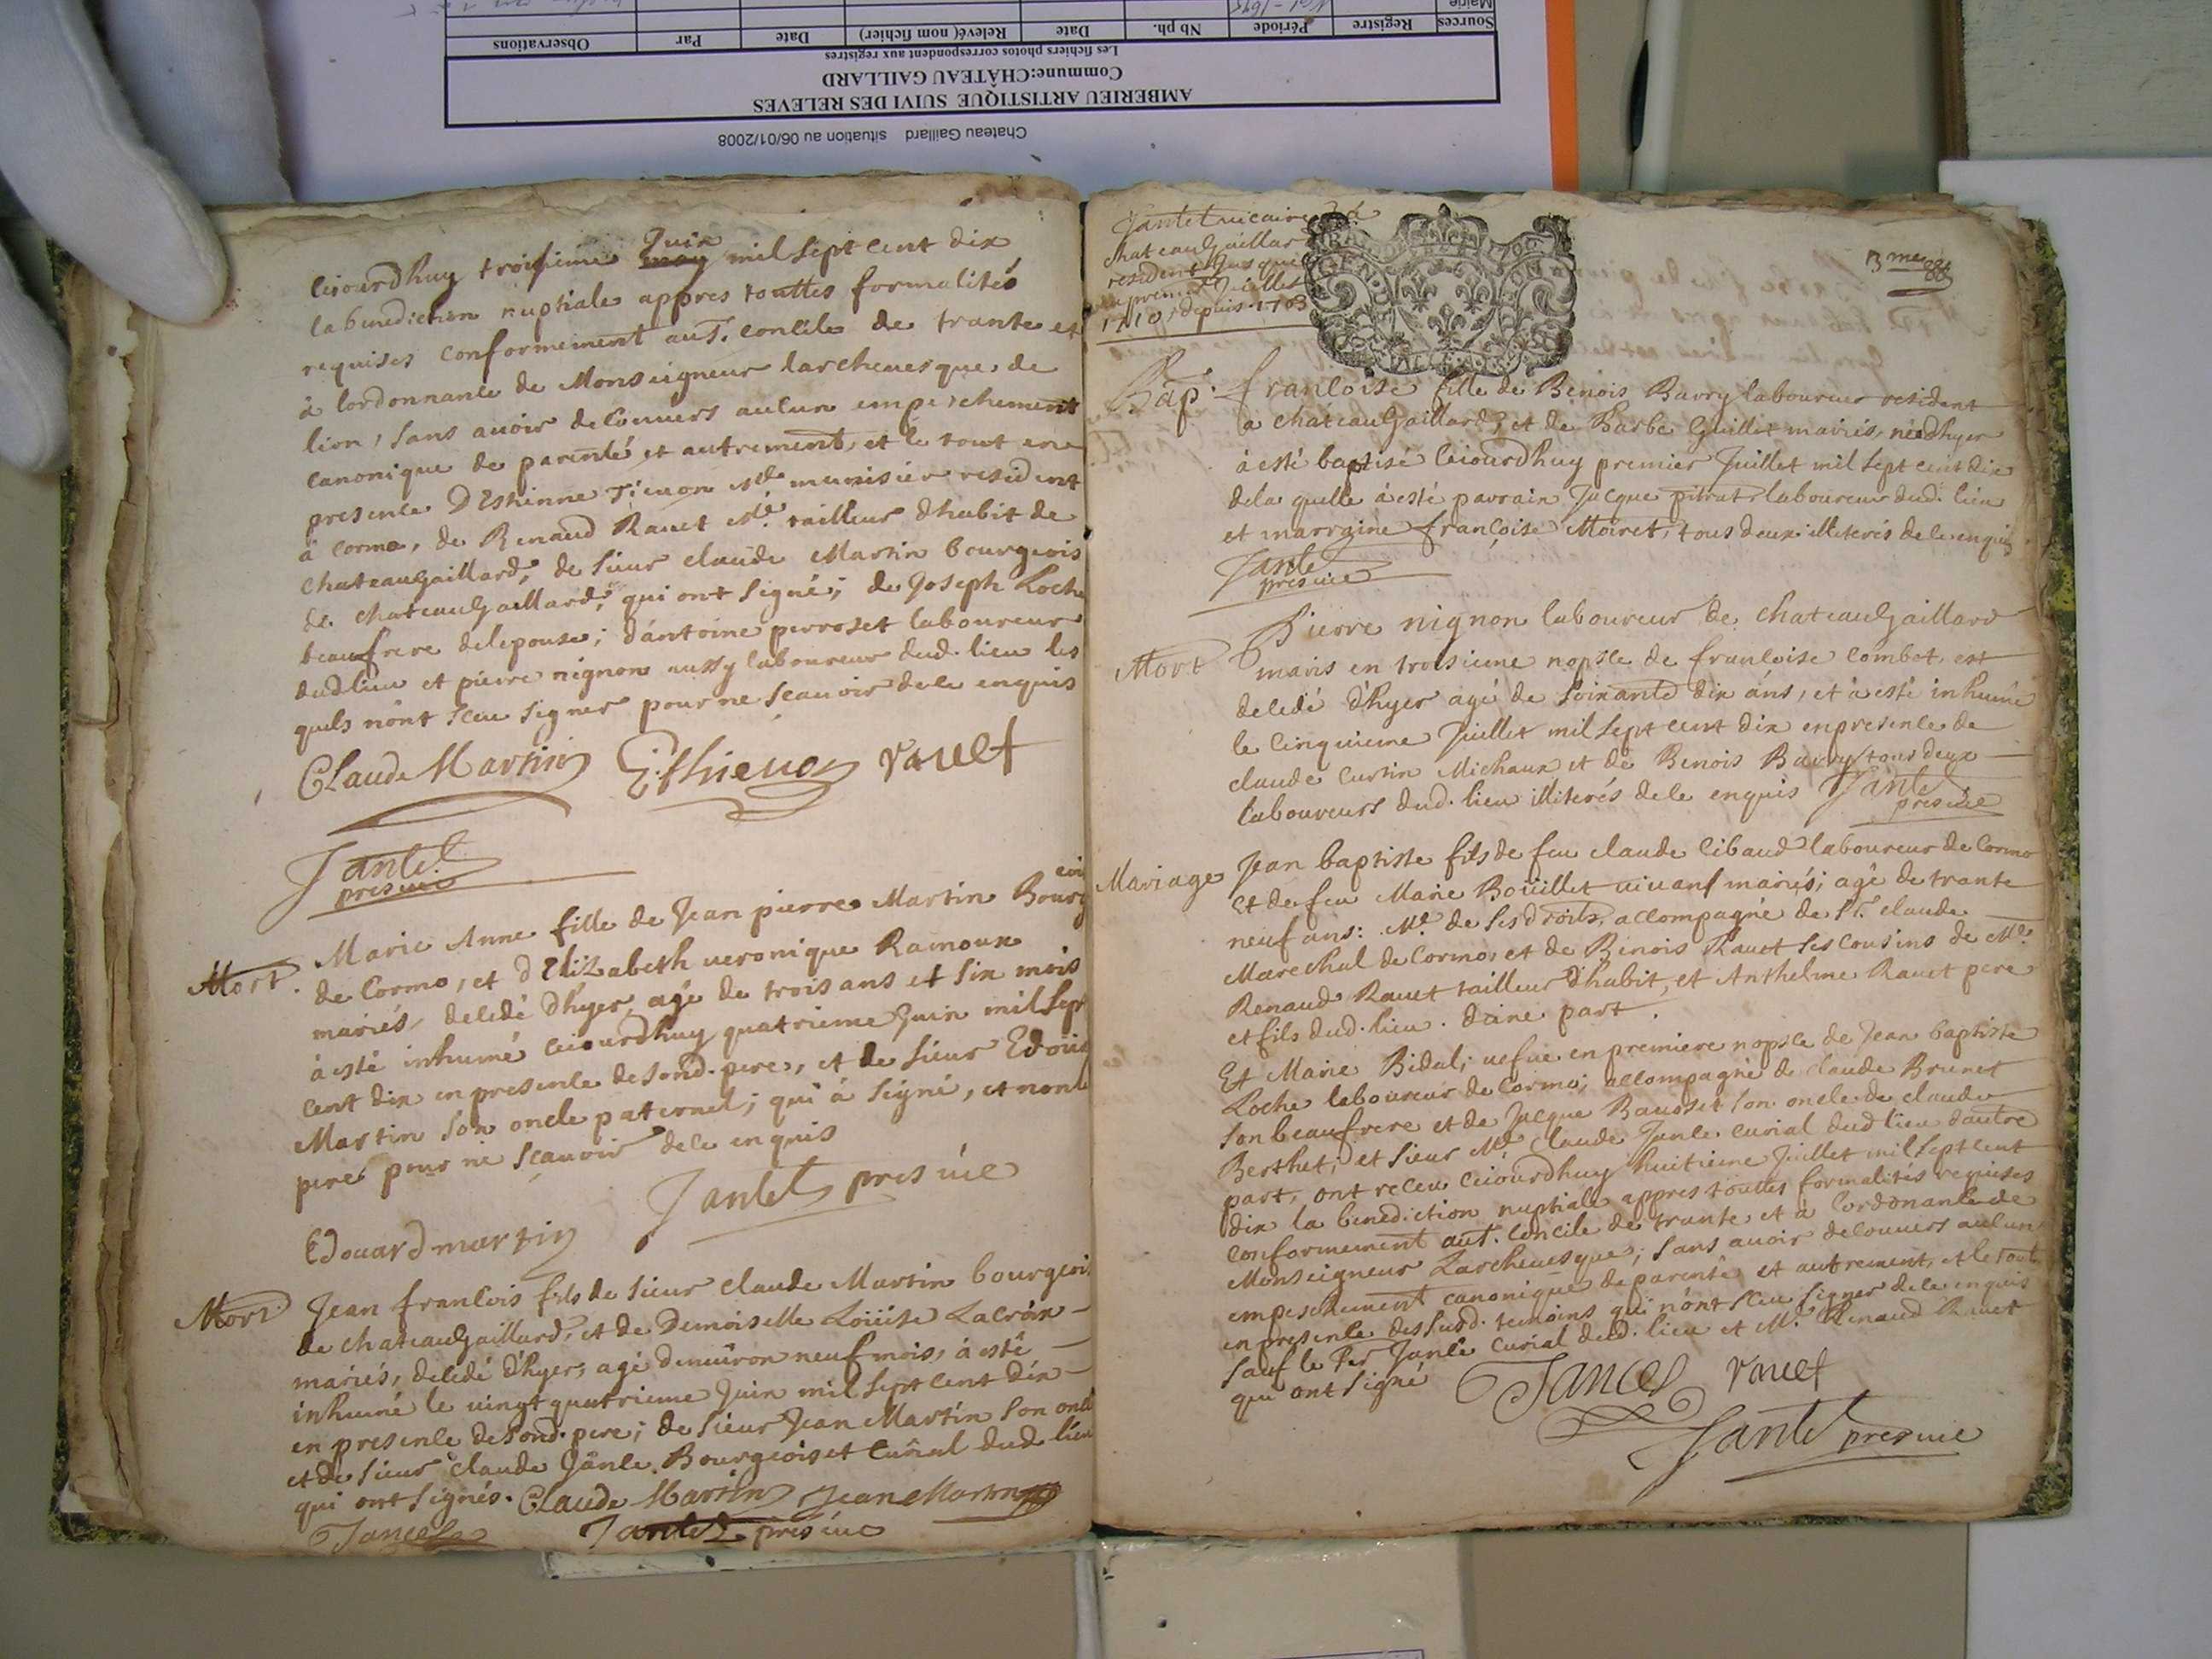 Chateau Gaillard situation au 06/01/2008
AMBERIEU ARTISTIQUE SUIVI DES RELEVES
Commune:CHÂTEAU GAILLARD
Les fichiers photos correspondent aux registres
Sources Registre Période Nb ph. Date Relevé( nom fichier) Date Par Observations
Mairie
ceiourdhuy troisieme Juin may mil sept cent dix
la benediction nuptiale appres touttes formalités
requises conformement au st. concile de trante et
à lordonnance de Monseigneur larcheuesque de
lion, sans auoir decouuers aucun empeschement
canonique de parenté et autrement, et le tout en
presence d'Esthinne Tieuon Me. menusier resident
à Cormo, de Renaud Rauet Me. tailleur dhabit de
chateaugaillard, de sieur claude Martin bourgeois
de chateaugaillard, qui ont signé; de Joseph Loche
beaufrere de lepouse; d'antoine perroset laboureur
dud. lieu et pierre nignon aussy laboureur dud. lieu les
quels n'ont sceu signer pour ne scauoir de ce enquis
Claude Martin E. thieuon rauet
Jantet
pres uic
Mort. Marie Anne fille de Jean pierre Martin Bourg
eois
de Cormo, et d'Elizabeth ueronique Ramoux
mariés, decedé d'hyer, agé de trois ans et six mois
à esté inhumé ceiourdhuy quatrieme Juin mil sept
cent dix en presence de sond. pere, et de sieur Edoüa
Martin son oncle paternel; qui à signé, et non le
pere pour ne sçauoir de ce enquis
Jantet pres uic
Edouard martin
Mort Jean francois fils de sieur claude Martin bourgeois
de chateaugaillard, et de Demoiselle Loüise Lacroix
mariés, decedé d'hyer, agé d'enuiron neuf mois, à esté
inhumé le uingt quatrieme Juin mil sept cent dix
en presence de sond. pere; de sieur Jean Martin son oncle
et de sieur claude Jance Bourgeois et curial dud. lieu
qui ont signés. Claude Martin Jean Martin
Jance Jantet pres uic
Jantet uicaire de
chateaugaillard
resident jusque
au premier Juillet
1710, depuis 1703
GEN
3me
Bap. francoise fille de Benois Barry laboureur resident
a chateaugaillard, et de Barbe Guillet mariés, née d'hyer
à esté baptisé ceiourdhuy premier Juillet mil sept cent dix
de la quelle à esté parrain Jacque pitrat laboureur dud. lieu
et marraine françoise Moiret, tous deux illiterés de ce enquis
Jantet
pres uic
Mort Pierre nignon laboureur de chateaugaillard
maris en troisieme nopsce de francoise Combet, est
decedé d'hyer agé de soixante dix ans, et à esté inhumé
le cinquieme Juillet mil sept cent dix en presence de
claude Curtin Michaux et de Benois Barry tous deux
laboureurs dud. lieu illiterés de ce enquis Jantet
pres uic
Mariage Jean baptiste fils de feu claude Cibaud laboureur de Cormo
et de feu Marie Boüillet uiuant mariés; agé de trante
neuf ans: Me. de ses droits, accompagné de Sr. claude
Marechal de Cormo, et de Benois Rauet ses cousins de Me.
Renaud Rauet tailleur d'habit, et Anthelme Rauet pere
et fils dud. lieu. d'une part.
Et Marie Bidal; uefue en premiere nopsce de Jean baptiste
Loche laboureur de Cormo; accompagné de claude Brunet
son beaufrere et de Jacque Bausset son oncle de claude
Berthet; et sieur Me. Claude Jance curial dud. lieu d'autre
part, ont receu ceiourdhuy huitieme Juillet mil sept cent
dix la benediction nuptiale appres touttes formalités requises
conformement au st. Concile de trante, et à l'ordonance de
Monseigneur Larcheuesque; sans auoir decouuers aucun
empeschement canonique de parenté et autrement, et le tout
en presence des susd. temoins qui n'ont sceu signer de ce enquis
sauf le Sr. Jance curial dud. lieu et Me. Renaud Rauet
qui ont signé Jance rauet
Jantet pres uic